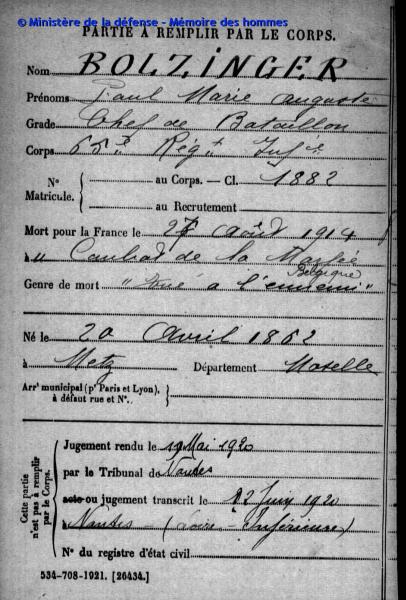 © Ministère de la défense - Mémoire des hommes
PARTIE A REMPLIR PAR LE CORPS.
Nom BOLZINGER
Prénoms Paul Marie Auguste
Grade Chef de Bataillon
Corps 65e Régt Infie
No Matricule. { au Corps. — Cl. 1882
au Recrutement
Mort pour la France le 27 août 1914
à u Combat de la Marfée
Belgique
Genre de mort "tué à l'ennemi"
Né le 20 Avril 1862
à Metz Département Moselle
Arrt municipal (pr Paris et Lyon), à défaut rue et No. }
Cette partie n'est pas à remplir par le Corps.
Jugement rendu le 19 Mai 1920
par le Tribunal de Nantes
acte ou jugement transcrit le 12 Juin 1920
à Nantes - (Loire-Inférieure)
No du registre d'état civil
534-708-1921. [26434.]